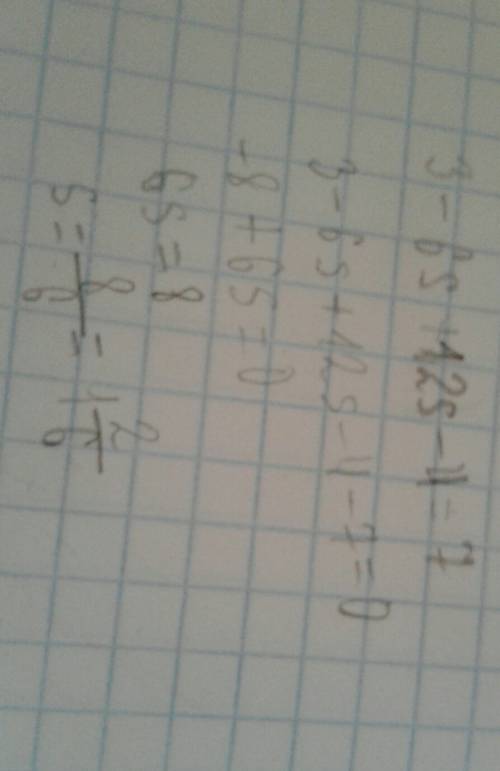 3 - 6s + 12s - 4 = 7
3 - 6s + 12s - 4 - 7 = 0
-8 + 6s = 0
6s = 8
s = 8/6 = 1 2/6